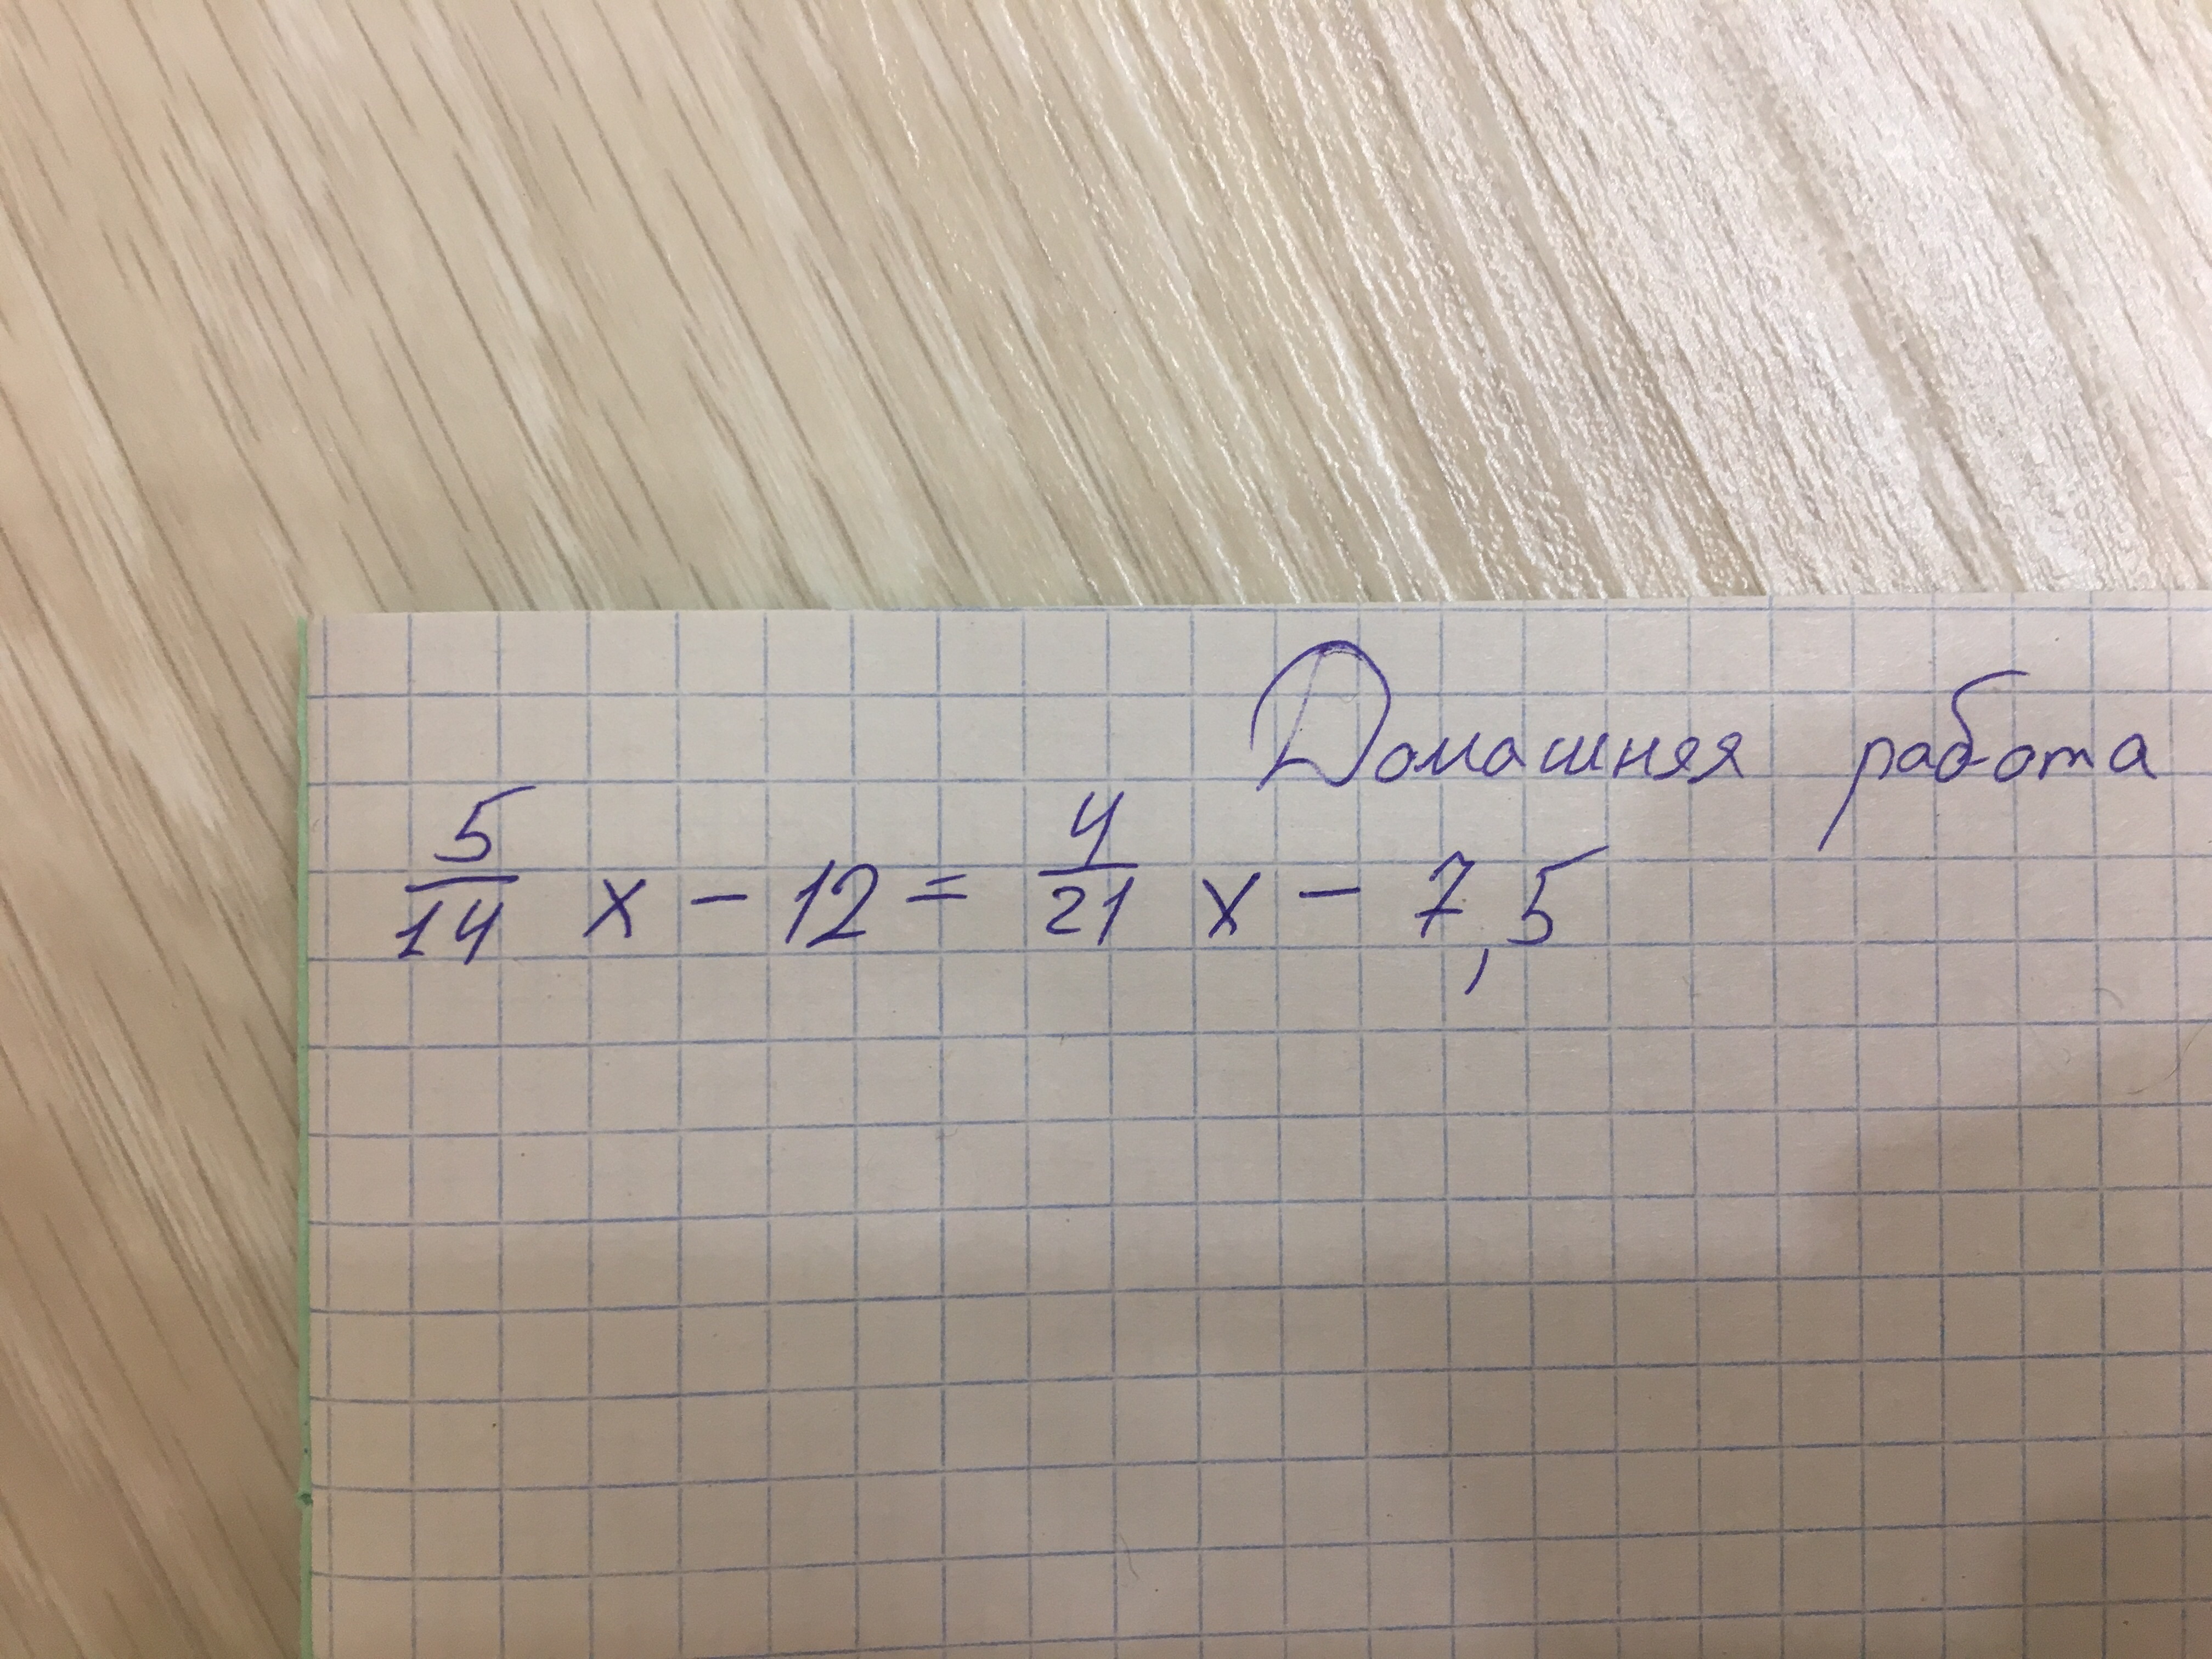 Домашняя работа
5/14 x - 12 = 4/21 x - 7,5